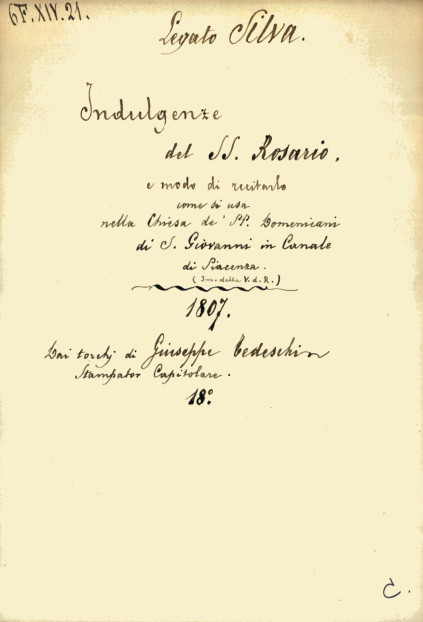 6F.XIV.21.
Legato Silva.
Indulgenze
del SS. Rosario.
e modo di recitarlo
come si usa
nella Chiesa de' PP. Domenicani
di S. Giovanni in Canale
di Piacenza.
(Im. della V. d. R.)
1807.
Dai torchj di Giuseppe Tedeschi
Stampator Capitolare.
18º
C.